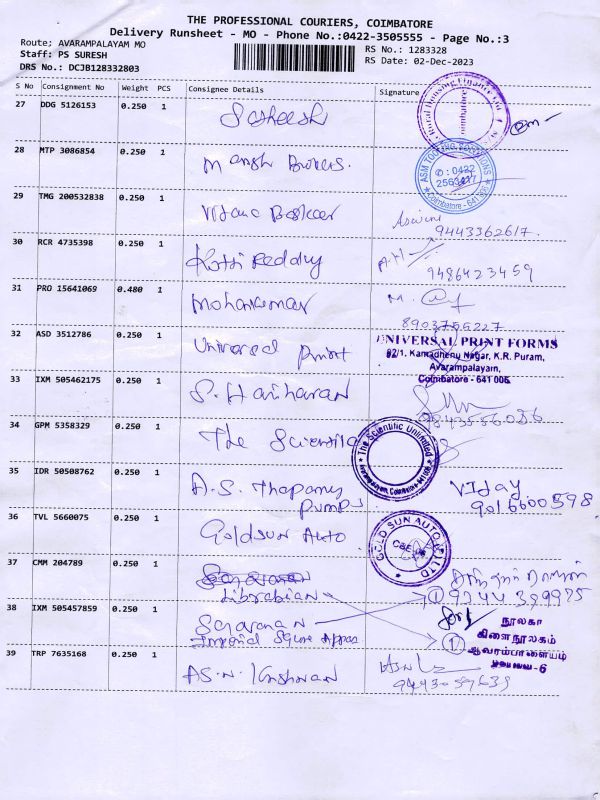 THE PROFESSIONAL COURIERS, COIMBATORE
Delivery Runsheet - MO - Phone No.:0422-3505555 - Page No.:3
Route; AVARAMPALAYAM MO
RS No.: 1283328
Staff: PS SURESH
RS Date: 02-Dec-2023
DRS No.: DCJB128332803
S No Consignment No Weight PCS Consignee Details Signature
27 DDG 5126153 0.250 1 Satheesh
28 MTP 3086854 0.250 1
ASM TOOLING SOLUTIONS
✆ : 0422
Coimbatore - 641
29 TMG 200532838 0.250 1
9443362617.
30 RCR 4735398 0.250 1 Kotti Reddy
9486423459
31 PRO 15641069 0.480 1 Mohankumar
32 ASD 3512786 0.250 1 Universal Print
UNIVERSAL PRINT FORMS
92/1, Kamadhenu Nagar, K.R. Puram,
Avarampalayam,
Coimbatore - 641 006
33 IXM 505462175 0.250 1 S. Hariharan
34 GPM 5358329 0.250 1 The Scientific
The Scientific Unlimited
35 IDR 50508762 0.250 1 A.S. Thapamy Pumps
Vijay
36 TVL 5660075 0.250 1 Goldsun Auto
GOLD SUN AUTO (P) LTD
37 CMM 204789 0.250 1
Librabian
38 IXM 505457859 0.250 1 Saravanan
நூலகர்
கிளை நூலகம்
ஆவாரம்பாளையம்
39 TRP 7635168 0.250 1 AS.N. Krishnan